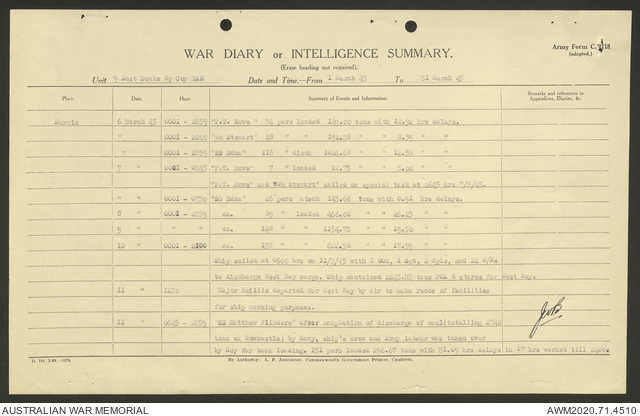 Army Form C. 2118
(adopted.)
WAR DIARY or INTELLIGENCE SUMMARY.
(Erase heading not required).
Unit 5 Aust Docks Op Coy RAE Date and Time—From 1 March 45 To 31 March 45
Place. Date. Hour. Summary of Events and Information. Remarks and references to Appendices, Diaries, &c.
Darwin 6 March 45 0001 - 2359 "F.T. Rowe" 54 pers loaded 149.00 tons with 12.94 hrs delays.
" 0001 - 2200 "Wm Stewart" 48 " " 192.38 " " 8.89 " "
" 0001 - 2359 "SS Edna" 116 " disch " " 12.58 " "
7 " 0001 - 0545 "F.T. Rowe" 7 " loaded 12.75 " " 3.00 " "
"F.T. Rowe" and "Wm Stewart" sailed on special task at 0645 hrs 7/3/45.
" 0001 - 0730 "SS Edna" 26 pers disch 143.66 tons with 0.91 hrs delays.
8 " 0001 - 2359 do. 89 " loaded 466.02 " " 26.25 " "
9 " " do. 148 " " 1154.72 " " 19.50 " "
10 " 0001 - 2100 do. 159 " " 622.50 " " 17.59 " "
Ship sailed at 0600 hrs on 11/3/45 with 1 WO2, 1 Sgt, 2 Cpls, and 22 O/Rs
to discharge West Bay cargo. Ship contained tons POL & stores for West Bay.
11 " 1230 Major Baillie departed for West Bay by air to make recce of facilities
for ship working purposes.
11 " 0645 - 2359 "SS Matthew Flinders" after completion of discharge of coal(totalling 2742
tons ex Newcastle; by Navy, ship's crew and Army labour was taken over
by Coy for back loading. 151 pers loaded 296.67 tons with 31.09 hrs delays in 17 hrs worked till
D. 791/3.42.—1570. By Authority: L. F. Johnston, Commonwealth Government Printer, Canberra.
AUSTRALIAN WAR MEMORIAL
AWM2020.71.4510